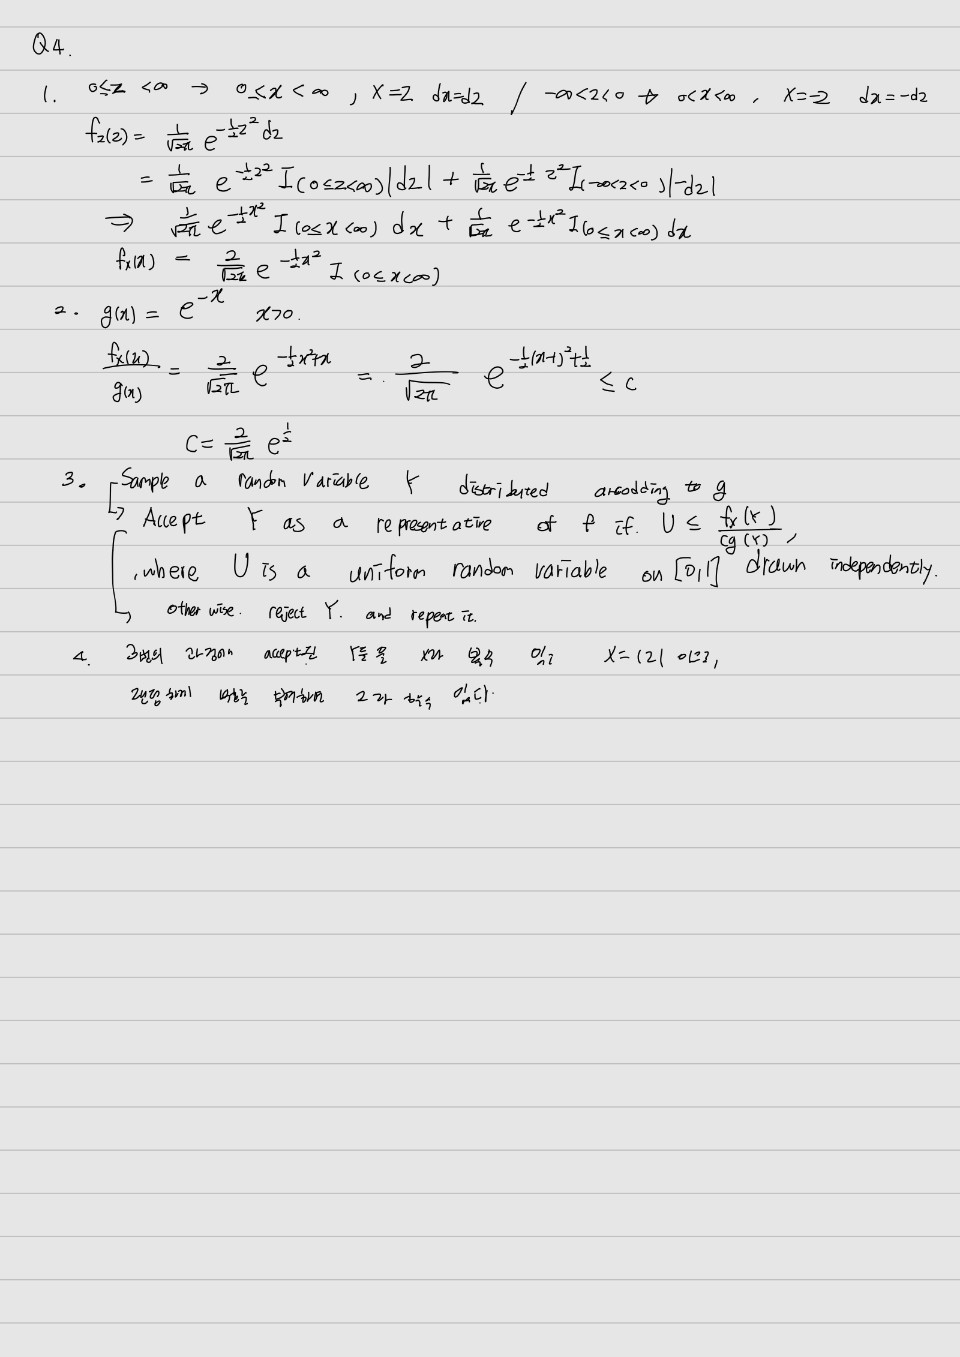 Q4.
1. 0≤z<∞ → 0≤x<∞, X=Z dx=dz / -∞<z<0 → 0<x<∞, X=-Z dx=-dz
f_Z(z) = 1/√2π e^{-1/2 z^2} dz
= 1/√2π e^{-1/2 z^2} I(0≤z<∞)|dz| + 1/√2π e^{-1/2 z^2} I(-∞<z<0)|-dz|
⇒ 1/√2π e^{-1/2 x^2} I(0≤x<∞) dx + 1/√2π e^{-1/2 x^2} I(0≤x<∞) dx
f_X(x) = 2/√2π e^{-1/2 x^2} I(0≤x<∞)
2. g(x) = e^{-x} x>0.
f_X(x)/g(x) = 2/√2π e^{-1/2 x^2+x} = 2/√2π e^{-1/2(x-1)^2+1/2} ≤ c
C = 2/√2π e^{1/2}
3. Sample a random variable Y distributed arcodding to g
→ Accept Y as a representative of f if. U ≤ f_X(Y)/cg(Y),
, where U is a uniform random variable on [0,1] drawn independently.
→ other wise. reject Y. and repeat it.
4. 3번의 과정에서 accept된 Y들을 X라 볼수 있고 X=|Z| 이므로,
랜덤하게 부호를 부여하면 Z라 할수 있다.